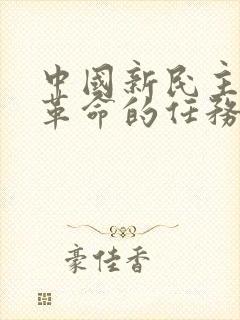 中國新民主
革命的任務
豪佳香